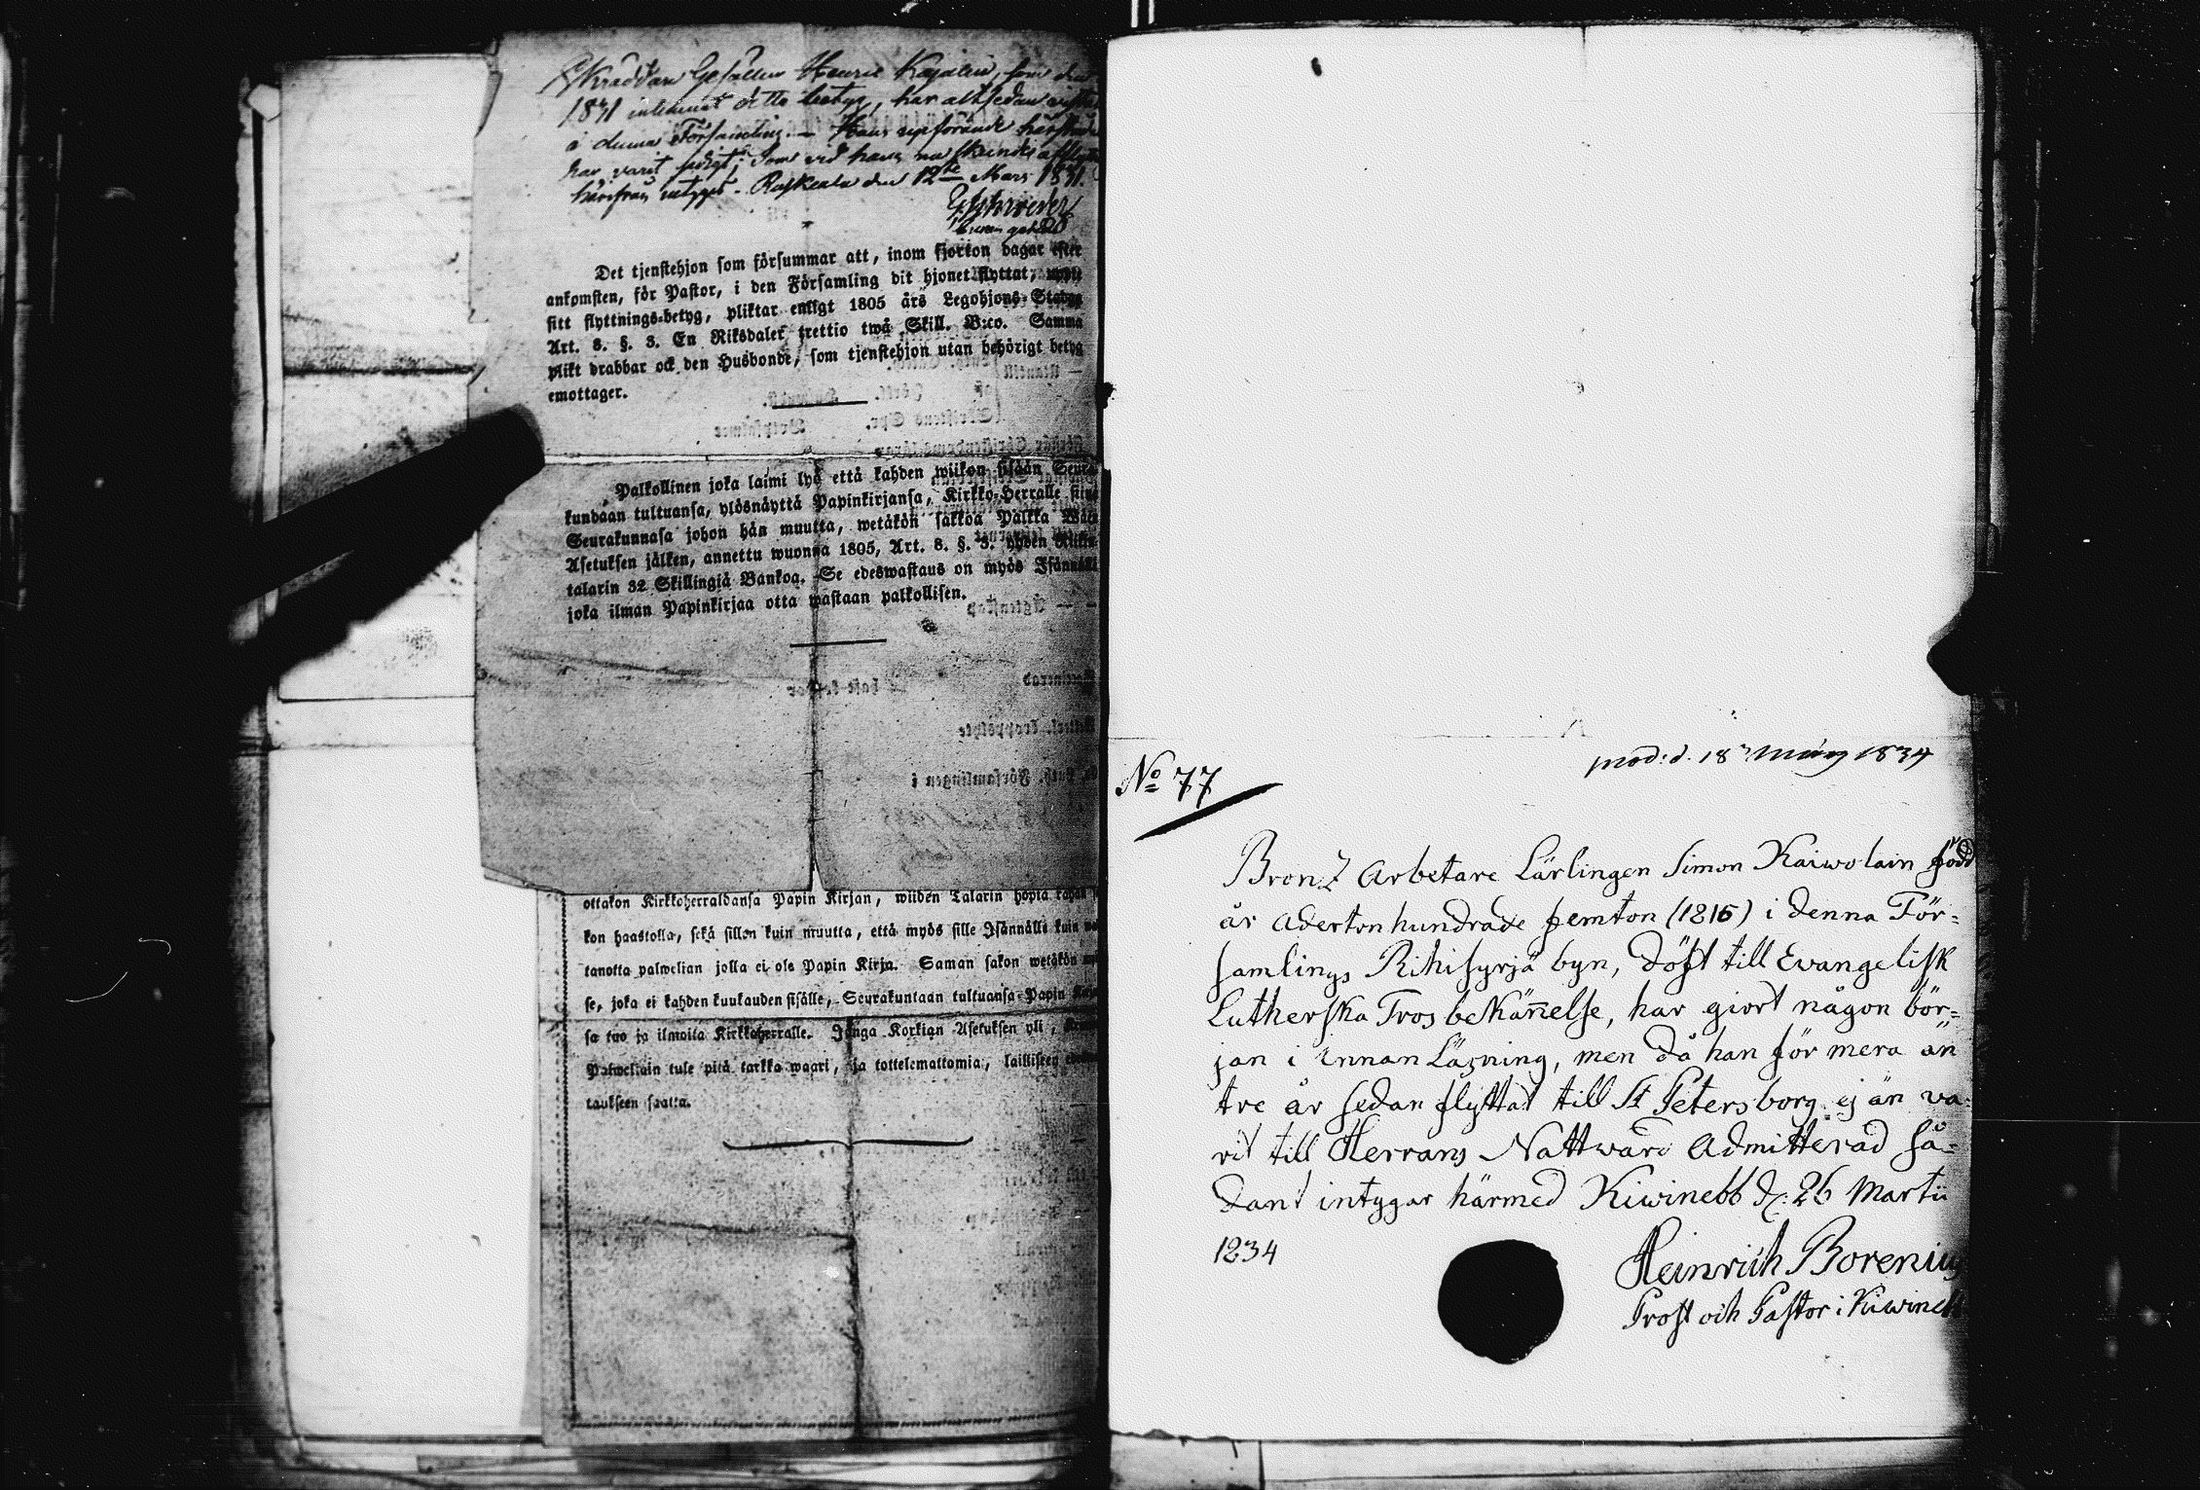 Skräddare Gesällen Henric Kajalen, som den
1831 inlemnat detta betyg, har alt sedan
i denna Församling. — Hans upförande härstädes
har varit sedigt; som vid hans nu skeende
härifrån intygas. Raskeala den 12te Mars 1831.
Det tjenstehjon som försummar att, inom fjorton dagar efter
ankomsten, för Pastor, i den Församling dit hjonet flyttat,
sitt flyttnings-betyg, pliktar enligt 1805 års Legohjons-Stadga
Art. 8. §. 3. En Riksdaler trettio twå Skill. B:co. Samma
plikt drabbar ock den Husbonde, som tjenstehjon utan behörigt betyg
emottager.
Palkollinen joka laimi lyö että kahden wiikon sisään Seura-
kundaan tultuansa, ylösnäyttä Papinkirjansa, Kirkko-Herralle siinä
Seurakunnasa johon hän muutta, wetäkön sakkoa Palkka
Asetuksen jälken, annettu wuonna 1805, Art. 8. §. 3. yhden Rikin-
talarin 32 Skillingiä Bankoa. Se edeswastaus on myös Isännällä
joka ilman Papinkirjaa otta wastaan palkollisen.
ottakon Kirkkoherraldansa Papin Kirjan, wiiden Talarin hopia rahan
kon haastolla, sekä sillon kuin muutta, että myös sille Isännälle kuin
tanotta palwelian jolla ei ole Papin Kirja. Saman sakon wetäkön
se, joka ei kahden kuukauden sisälle, Seurakuntaan tultuansa Papin
sa tuo ja ilmoita Kirkkoherralle. Jonga Korkian Asetuksen yli,
Palweliain tule pitä tarkka waari, ja tottelemattomia, lailliseen
taukseen saatta.
prod: d. 18 1834
No 77
Bronz Arbetare Lärlingen Simon Kaiwolain född
år adertonhundrade femton (1815) i denna För-
samlings Rihisyrjä byn, döpt till Evangelisk
Lutherska Tros bekännelse, har giort någon bör-
jan i innan Läsning, men då han för mera än
tre år sedan flyttat till St Petersborg ej än va-
rit till Herrans Nattward Admitterad så-
dant intygar härmed Kiwinebb d. 26 Martii
1834
Heinrich Borenius
Prost och Pastor i Kiwinebb